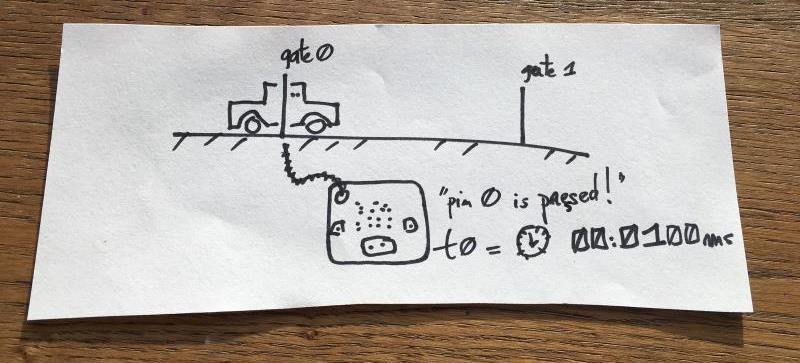 gate 0
gate 1
"pin 0 is pressed!"
t0 = 00:0100ms